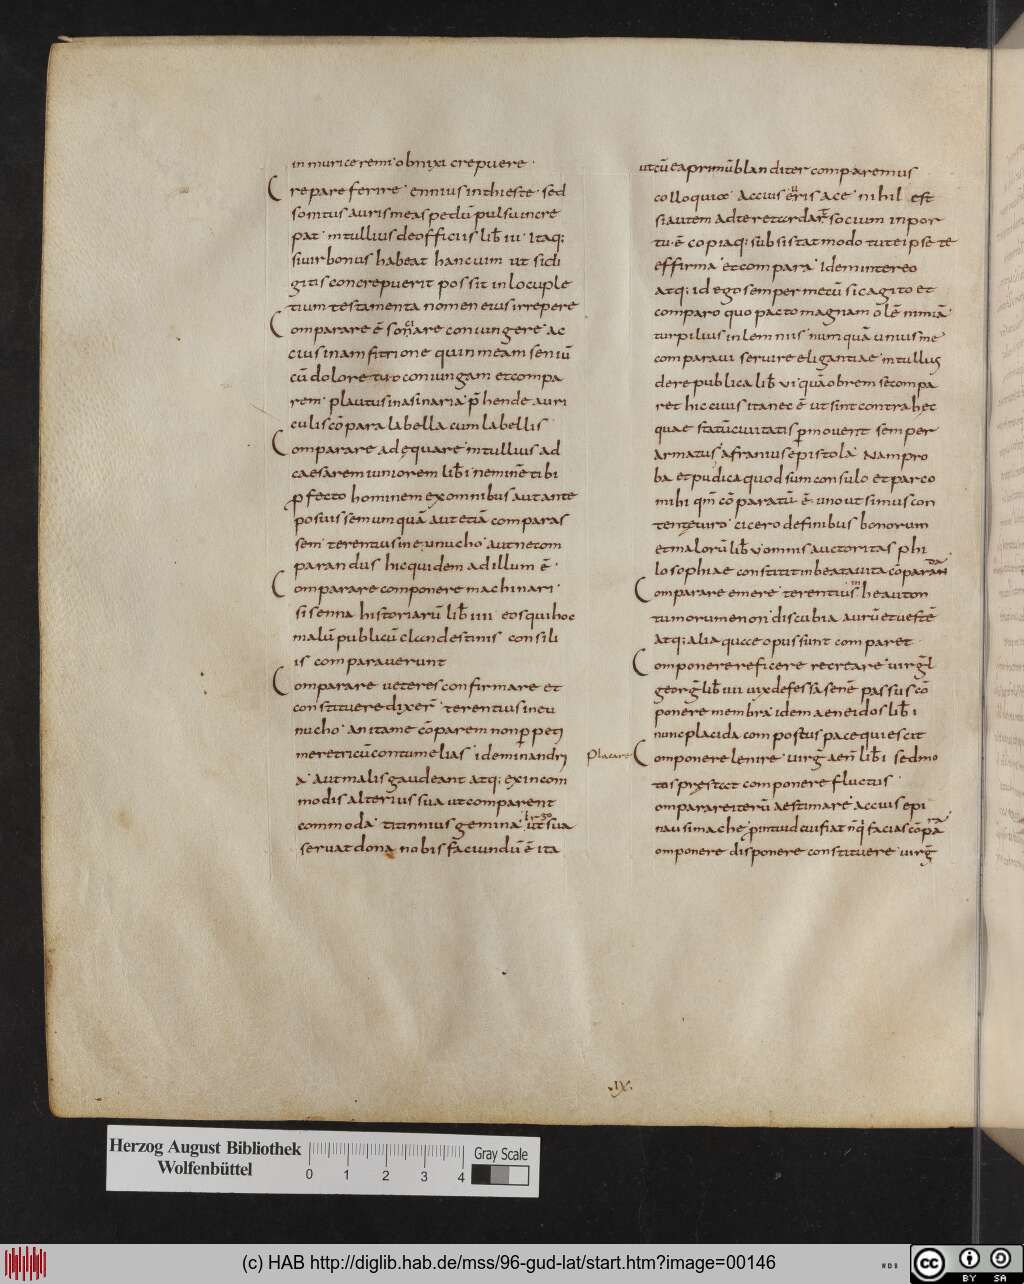 in murice remi obnixi crepuere ·
Crepare ferire · ennius inthieste · sed
sonitus auris meas pedū pulsu incre
pat · m tullius de officiis lib̄ iii · Itaq;
si uir bonus habeat hanc uim ut si di
gitis concrepuerit possit in locuple
tium testamenta nomen eius irrepere
Comparare ē coniungere ac
cius in amfitrione quin meam seniū
cū dolore tuo coniungam et compa
rem · plautus in asinaria p̄hende auri
culis cōpara labella cum labellis ·
Comparare adęquare m tullius ad
caesarem iuniorem lib̄ i neminē tibi
ꝓfecto hominem ex omnibus aut ante
posuissem umquā aut etiā comparas
sem · terentius in eunucho · aut necom
parandus hic quidem ad illum ē ·
Comparare componere machinari ·
sisenna historiarū lib̄ iiii eos qui hoc
malū publicū clandestinis consili
is comparauerunt
Comparare ueteres confirmare et
constituere dixer̄ · terentius in eu
nucho · an ita me cōparem non ꝑpeti
meretricū contumelias · idem in andri
a · aut malis gaudeant atq; ex incom
modis alterius sua ut comparent
commoda · titinnius gemina · ut sūa
seruat dona nobis faciundū ē ita
ut cū ea primū blanditer comparemus
colloquiū · accius nihil est
si autem ad te socium in por
tu ē copiaq; subsistat modo tute ipse te
effirma et compara · Idem in tereo
atq; id ego semper mecū sic agito et
comparo quo pacto magnam ōlē nimiā ·
turpilius in lemniis · numquā unius me
comparaui seruire eligantiae m tullius
de re publica lib̄ vi quā obrem se compa
ret hic ciuis ita necē ē ut sint contra hec
quae statū ciuitatis ꝑmouent semper
armatus · afranius epistola · Nam pro
ba et pudica quod sum consulo et parco
mihi qm̄ cōparatū ē · uno ut simus con
tentę uiro · cicero de finibus bonorum
et malorū lib̄ v omnis auctoritas phi
losophiae constitit in beata uita cōparan
da
Comparare emere · terentius heauton
tumorumenon · disc ubi a aurū et uestē
atq; alia quae opus sunt comparet ·
Componere reficere recreare · uirḡl
georḡ lib̄ iiii uix defessa senē passus cō
ponere membra · idem aeneidos lib̄ i
nunc placida compostus pace quiescit
Placare
Componere lenire · uirḡ aen̄ lib̄ i sed mo
tos pręstat componere fluctus ·
omparare iterū aestimare accius epi
nausimache cōpa
ra
omponere disponere constituere uirḡ
.IX.
Herzog August Bibliothek
Wolfenbüttel
0 1 2 3 4
Gray Scale
(c) HAB http://diglib.hab.de/mss/96-gud-lat/start.htm?image=00146
WDB
cc BY SA